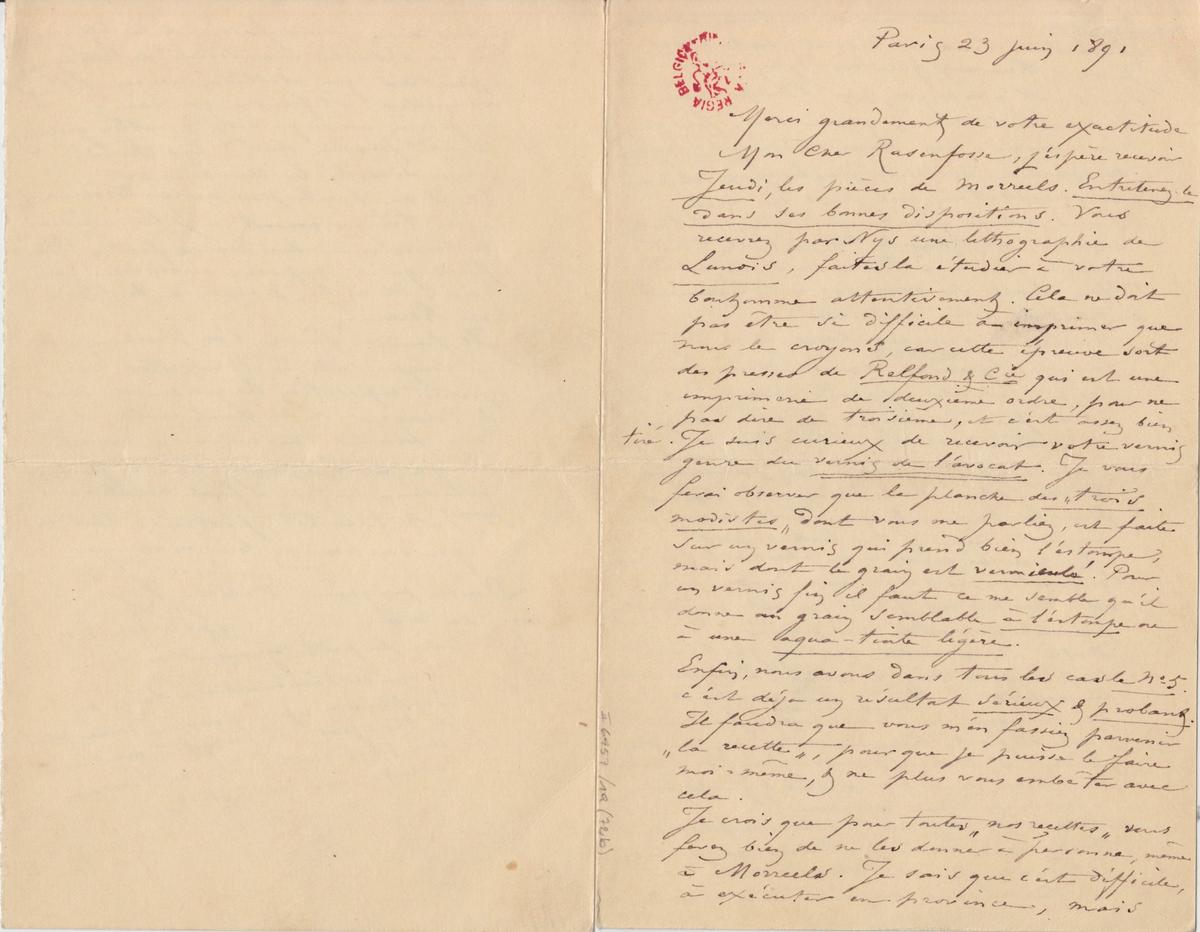 Paris 23 juin 1891
Merci grandement de votre exactitude
Mon Cher Rassenfosse, j'espère recevoir
Jeudi, les pièces de Morreels. Entretenez le
dans ses bonnes dispositions. Vous
recevrez par Nys une lithographie de
Lunois, faites la étudier à votre
bonhomme attentivement. Cela ne doit
pas être si difficile à imprimer que
nous le croyons, car cette épreuve sort
des presses de Belfond & Cie qui est une
imprimerie de deuxième ordre, pour ne
pas dire de troisième, et c'est assez bien
tiré. Je suis curieux de recevoir votre vernis
genre du vernis de l'avocat. Je vous
ferai observer que la planche des "trois
modistes" dont vous me parliez, est faite
sur un vernis qui prend bien l'estompe,
mais dont le grain est vermiculé. Pour
un vernis fin il faut ce me semble qu'il
donne un grain semblable à l'estompe ou
à une aqua-tinte légère.
Enfin, nous avons dans tous les cas le No 5.
c'est déja un résultat sérieux & probant.
Il faudra que vous m'en fassiez parvenir
"la recette", pour que je puisse le faire
moi-même, & ne plus vous embêter avec
cela.
Je crois que pour toutes "nos recettes" vous
ferez bien de ne les donner à personne, même
à Morreels. Je sais que c'est difficile,
à exécuter en province, mais
REGIA BELGICA